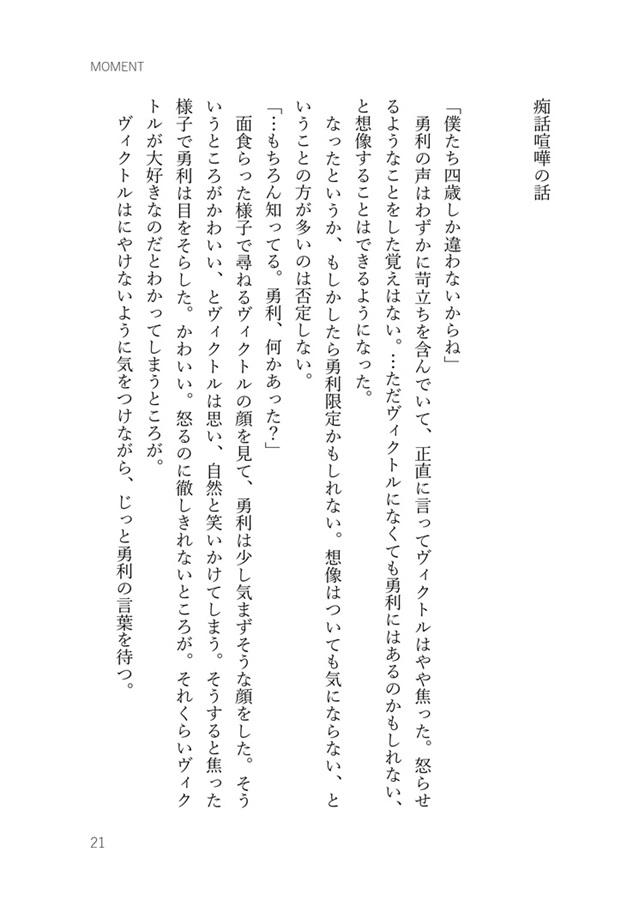 MOMENT
痴話喧嘩の話
「僕たち四歳しか違わないからね」
　勇利の声はわずかに苛立ちを含んでいて、正直に言ってヴィクトルはやや焦った。怒らせ
るようなことをした覚えはない。…ただヴィクトルになくても勇利にはあるのかもしれない、
と想像することはできるようになった。
　なったというか、もしかしたら勇利限定かもしれない。想像はついても気にならない、と
いうことの方が多いのは否定しない。
「…もちろん知ってる。勇利、何かあった？」
　面食らった様子で尋ねるヴィクトルの顔を見て、勇利は少し気まずそうな顔をした。そう
いうところがかわいい、とヴィクトルは思い、自然と笑いかけてしまう。そうすると焦った
様子で勇利は目をそらした。かわいい。怒るのに徹しきれないところが。それくらいヴィク
トルが大好きなのだとわかってしまうところが。
　ヴィクトルはにやけないように気をつけながら、じっと勇利の言葉を待つ。
21